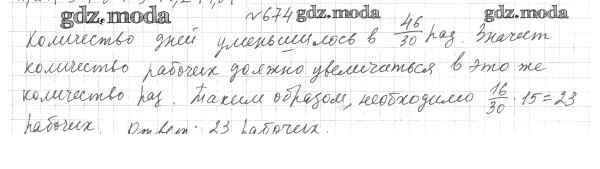 gdz.moda №674 gdz.moda gdz.moda
Количество дней уменьшилось в 46/30 раз. Значит
количество рабочих должно увеличиться в это же
количество раз. Таким образом, необходимо 16/30 · 15 = 23
рабочих. Ответ: 23 рабочих.